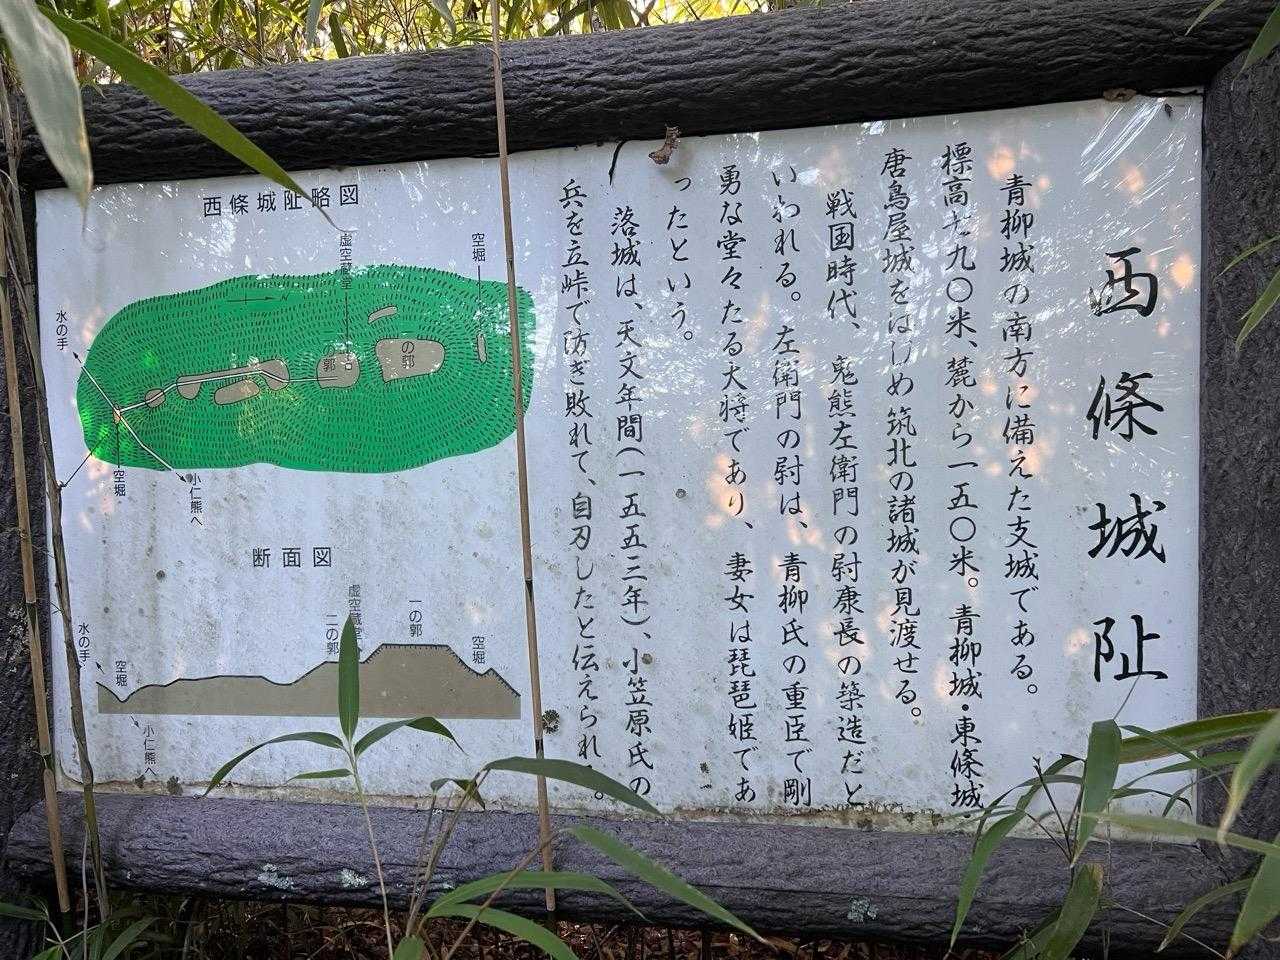 西條城阯
青柳城の南方に備えた支城である。
標高七九〇米、麓から一五〇米。青柳城・東條城・
唐鳥屋城をはじめ筑北の諸城が見渡せる。
戦国時代、鬼熊左衛門の尉康長の築造だと
いわれる。左衛門の尉は、青柳氏の重臣で剛
勇な堂々たる大将であり、妻女は琵琶姫であ
ったという。
落城は、天文年間(一五五三年)、小笠原氏の
兵を立峠で防ぎ敗れて、自刃したと伝えられ
西條城阯略図
空堀
虚空蔵堂
水の手
の郭
の郭
空堀
小仁熊へ
N
断面図
虚空蔵堂
一の郭
二の郭
空堀
水の手
空堀
小仁熊へ